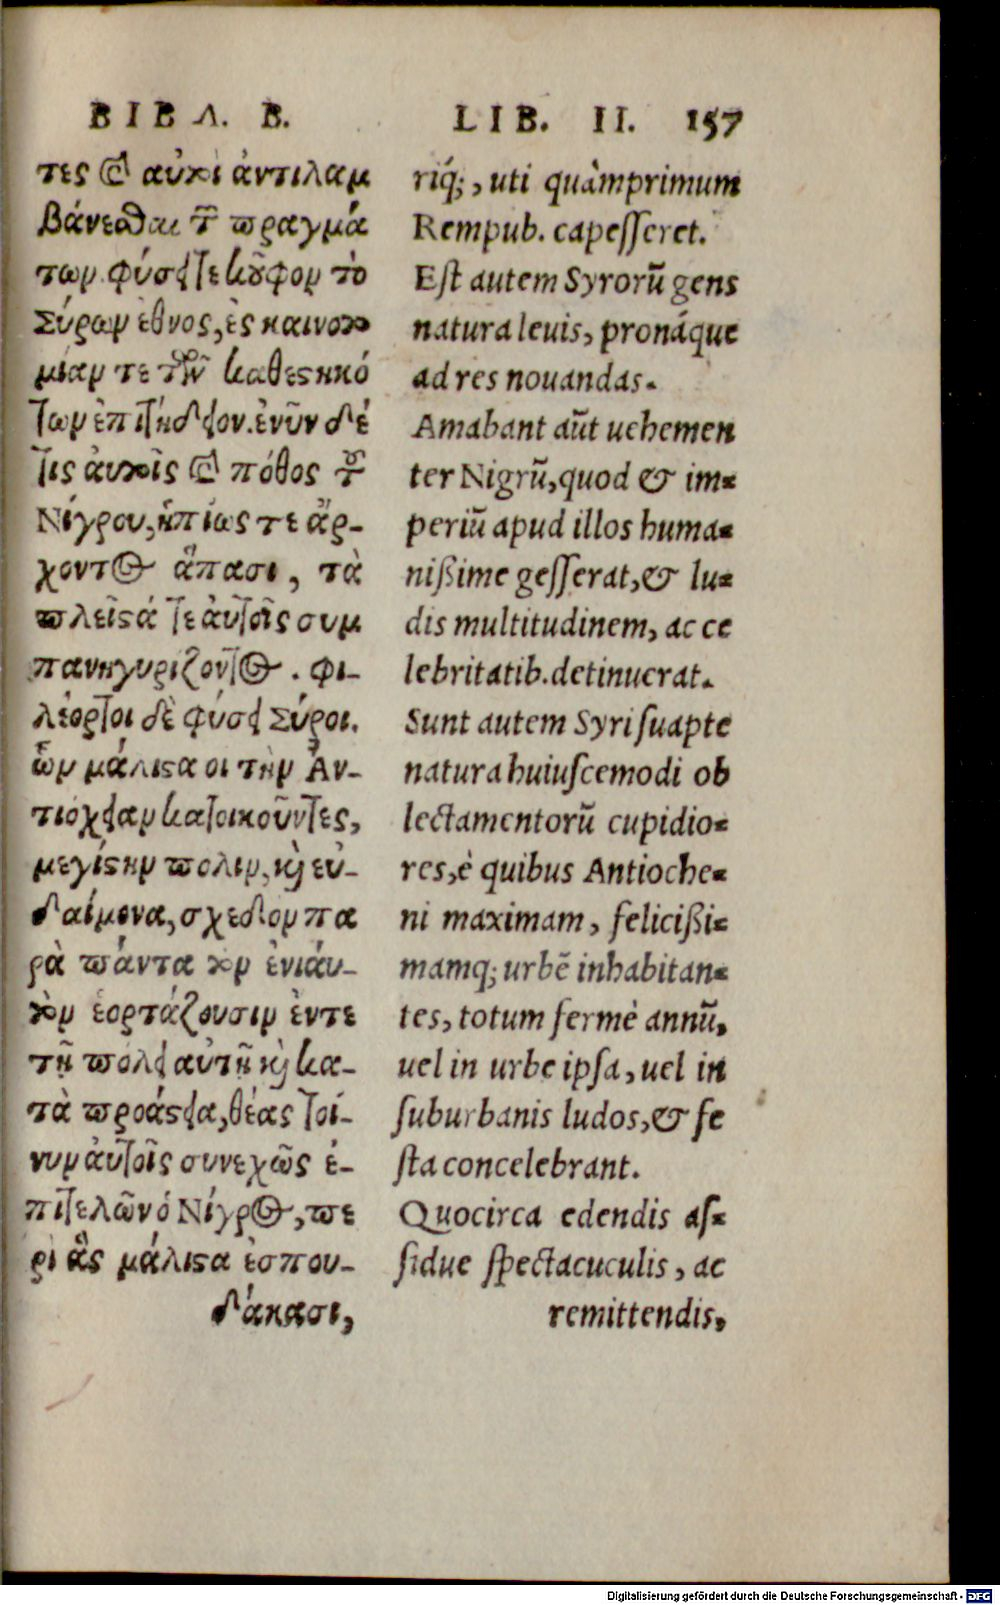 ΒΙΒΛ. Β.
τες & αὐτὸ ἀντιλαμ
βάνεσθαι τῶν πραγμά
των. φύσει τε κοῦφον τὸ
Σύρων ἔθνος, ἐς καινοτο
μίαν τε τῶν καθεστηκό
των ἐπιτήδειον. ἐνῆν δέ
τις αὐτοῖς & πόθος τοῦ
Νίγρου, ἠπίως τε ἄρ-
χοντος ἅπασι, τὰ
πλεῖστά τε αὐτοῖς συμ
πανηγυρίζοντος. φι-
λέορτοι δὲ φύσει Σύροι.
ὧν μάλιστα οἱ τὴν Ἀν-
τιόχειαν κατοικοῦντες,
μεγίστην πόλιν, καὶ εὐ-
δαίμονα, σχεδὸν πα
ρὰ πάντα τὸν ἐνιαυ-
τὸν ἑορτάζουσιν ἔν τε
τῇ πόλει αὐτῇ καὶ κα-
τὰ προάστεια, θέας τοί-
νυν αὐτοῖς συνεχῶς ἐ-
πιτελῶν ὁ Νίγρος, πε
ρὶ ἃς μάλιστα ἐσπου-
δάκασι,
LIB. II. 157
riq́;, uti quàmprimum
Rempub. capeſſeret.
Eſt autem Syrorũ gens
natura leuis, pronáque
ad res nouandas.
Amabant aũt uehemen
ter Nigrũ, quod & im-
periũ apud illos huma-
nißime geſſerat, & lu-
dis multitudinem, ac ce
lebritatib. detinuerat.
Sunt autem Syri ſuapte
natura huiuſcemodi ob
lectamentorũ cupidio-
res, è quibus Antioche-
ni maximam, felicißi-
mamq; urbẽ inhabitan-
tes, totum fermè annũ,
uel in urbe ipſa, uel in
ſuburbanis ludos, & fe
ſta concelebrant.
Quocirca edendis aſ-
ſidue ſpectacuculis, ac
remittendis,
Digitalisierung gefördert durch die Deutsche Forschungsgemeinschaft - DFG